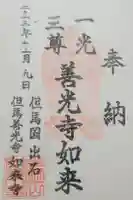 奉納
一光
三尊
善光寺如来
二〇二三年十一月九日
但馬國出石
但馬善光寺如来寺